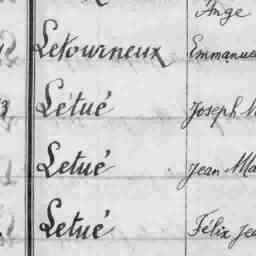 Ange
Letourneux Emmanuel
3 Letué Joseph M
Letué Jean Ma
Letué Félix Je